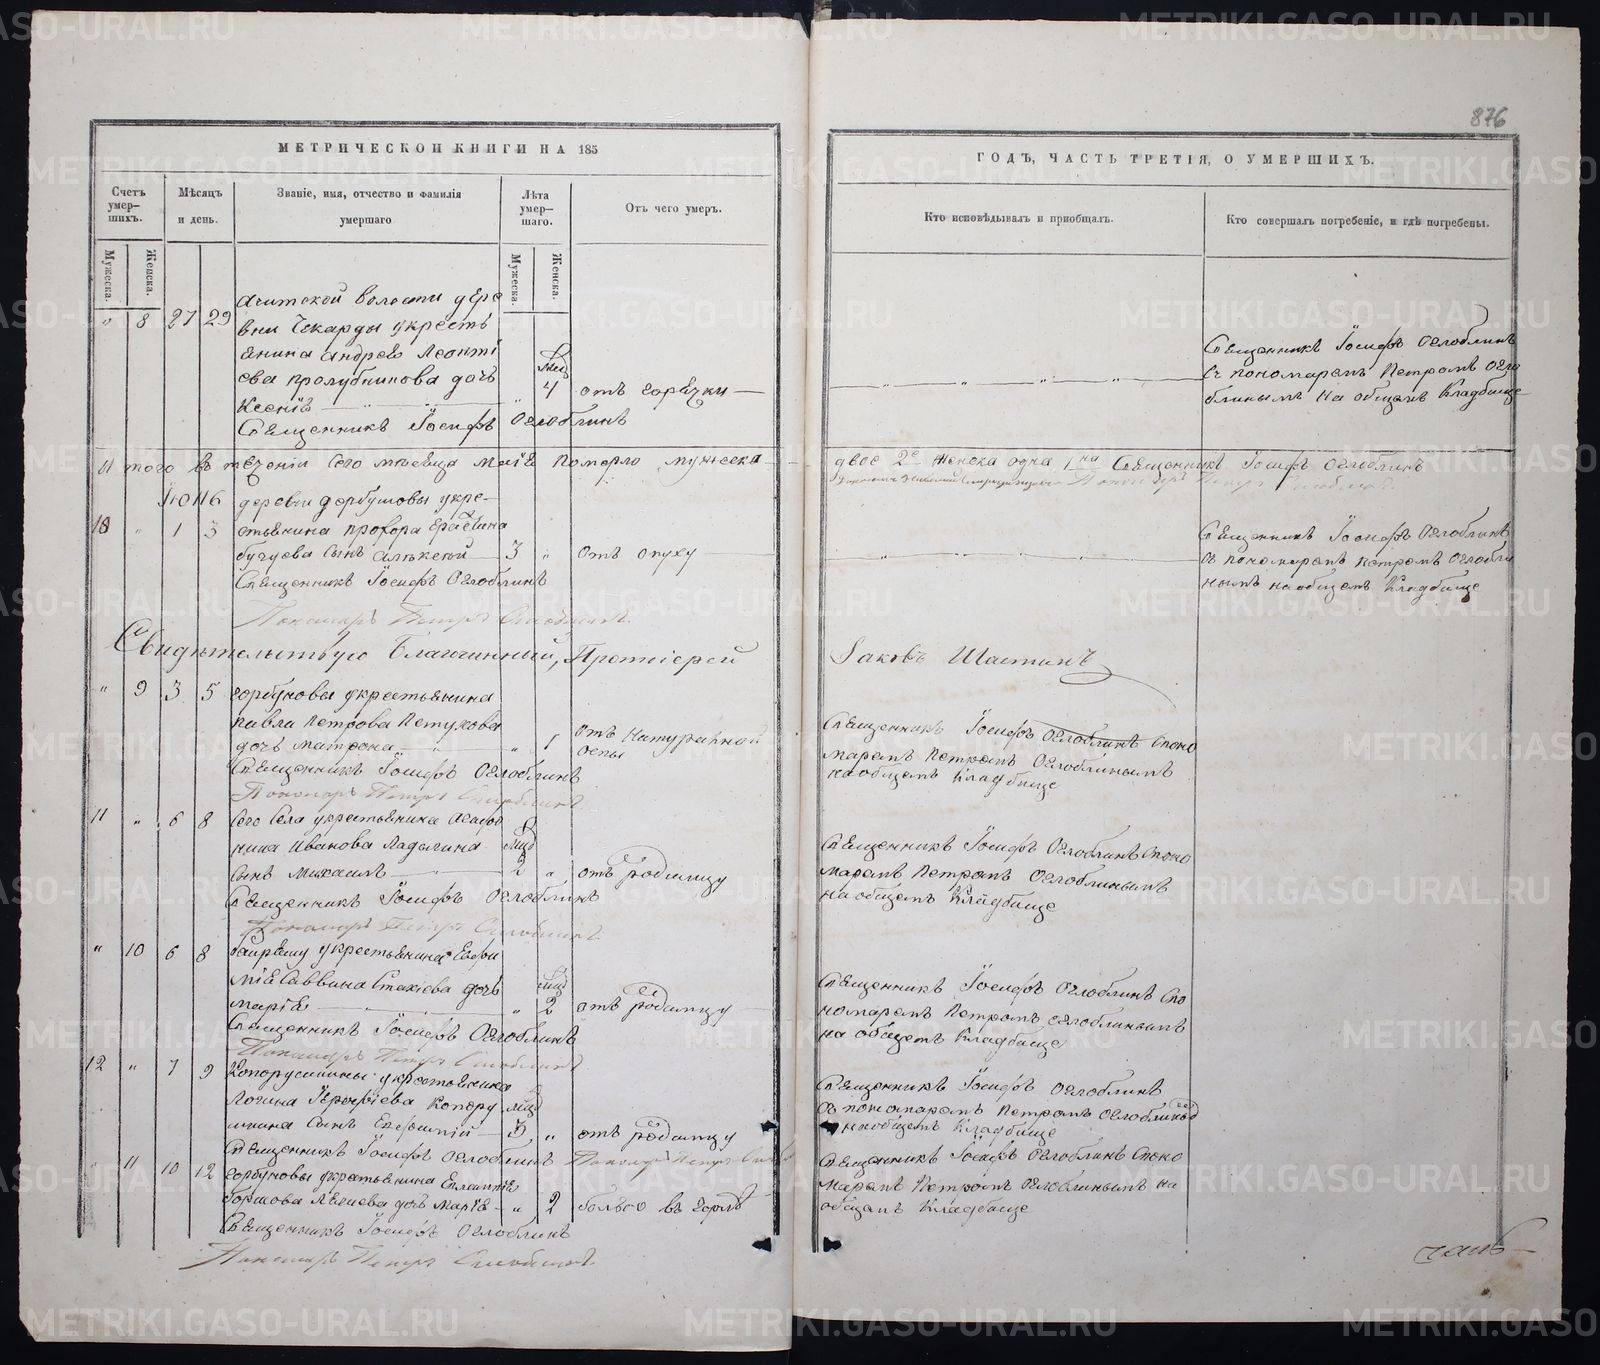 876
МЕТРИЧЕСКОЙ КНИГИ НА 185
ГОДЪ, ЧАСТЬ ТРЕТІЯ, О УМЕРШИХЪ.
Счетъ умер-шихъ.
Мѣсяцъ и день.
Званіе, имя, отчество и фамилія умершаго
Лѣта умер-шаго.
Отъ чего умеръ.
Кто исповѣдывалъ и пріобщалъ.
Кто совершалъ погребеніе, и гдѣ погребены.
Мужеска.
Женска.
Мужеска.
Женска.
Ачитской волости дере
" 8 27 29 вни Чекарды укресть
янина Андрея Леонті
ева пролубникова дочь
Ксенія " 4 отъ горячки
Священникъ Іосифъ Оглоблинъ
Священникъ Іосифъ Оглоблинъ
съ пономаремъ Петромъ Огло
блинымъ на общемъ кладбище
И того въ теченіи сего мѣсяца маія померло мужеска двое 2е женска одна 1на Священникъ Іосифъ Оглоблинъ
Пономарь Петръ Оглоблинъ
Іюня 16 деревни дербушовы укре-
10 " 1 3 стьянина прохора
сынъ Алексей 3 " отъ опуху
Священникъ Іосифъ Оглоблинъ
Пономарь Петръ Оглоблинъ
Священникъ Іосифъ Оглоблинъ
съ пономаремъ петромъ Оглобли
нымъ на общемъ кладбище
Свидѣтельствую Благочинный, Протоіерей Іаковъ Шастинъ
" 9 3 5 горбуновы укрестьянина
павла петрова Петухова
дочь матрона " 1 отъ натуральной оспы
Священникъ Іосифъ Оглоблинъ
Пономарь Петръ Оглоблинъ
Священникъ Іосифъ Оглоблинъ споно
маремъ Петромъ Оглоблинымъ
на общемъ кладбище
11 " 6 8 сего села укрестьянина
Иванова Ладыгина
сынъ михаилъ 2 " отъ родимцу
Священникъ Іосифъ Оглоблинъ
Пономарь Петръ Оглоблинъ
Священникъ Іосифъ Оглоблинъ споно
маремъ Петромъ Оглоблинымъ
на общемъ кладбище
" 10 6 8 укрестьянина Евфи
мія Саввина дочь
марія " 2 отъ родимцу
Священникъ Іосифъ Оглоблинъ
Пономарь Петръ Оглоблинъ
Священникъ Іосифъ Оглоблинъ спо
номаремъ Петромъ Оглоблинымъ
на общемъ кладбище
12 " 7 9 Копорушкины укрестьянина
Логина Копору
шкина сынъ 3 " отъ родимцу
Священникъ Іосифъ Оглоблинъ Пономарь Петръ
Священникъ Іосифъ Оглоблинъ
съ пономаремъ Петромъ Оглоблинымъ
на общемъ кладбище
" 11 10 12 горбуновы укрестьянина
дочь Марія " 2 болью въ горлѣ
Священникъ Іосифъ Оглоблинъ
Пономарь Петръ Оглоблинъ
Священникъ Іосифъ Оглоблинъ споно
маремъ Петромъ Оглоблинымъ на
общемъ кладбище
METRIKI.GASO-URAL.RU